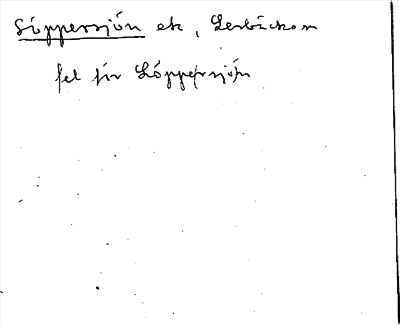 Söppersjön ek, Lerbäcks sn
fel för Löppersjön